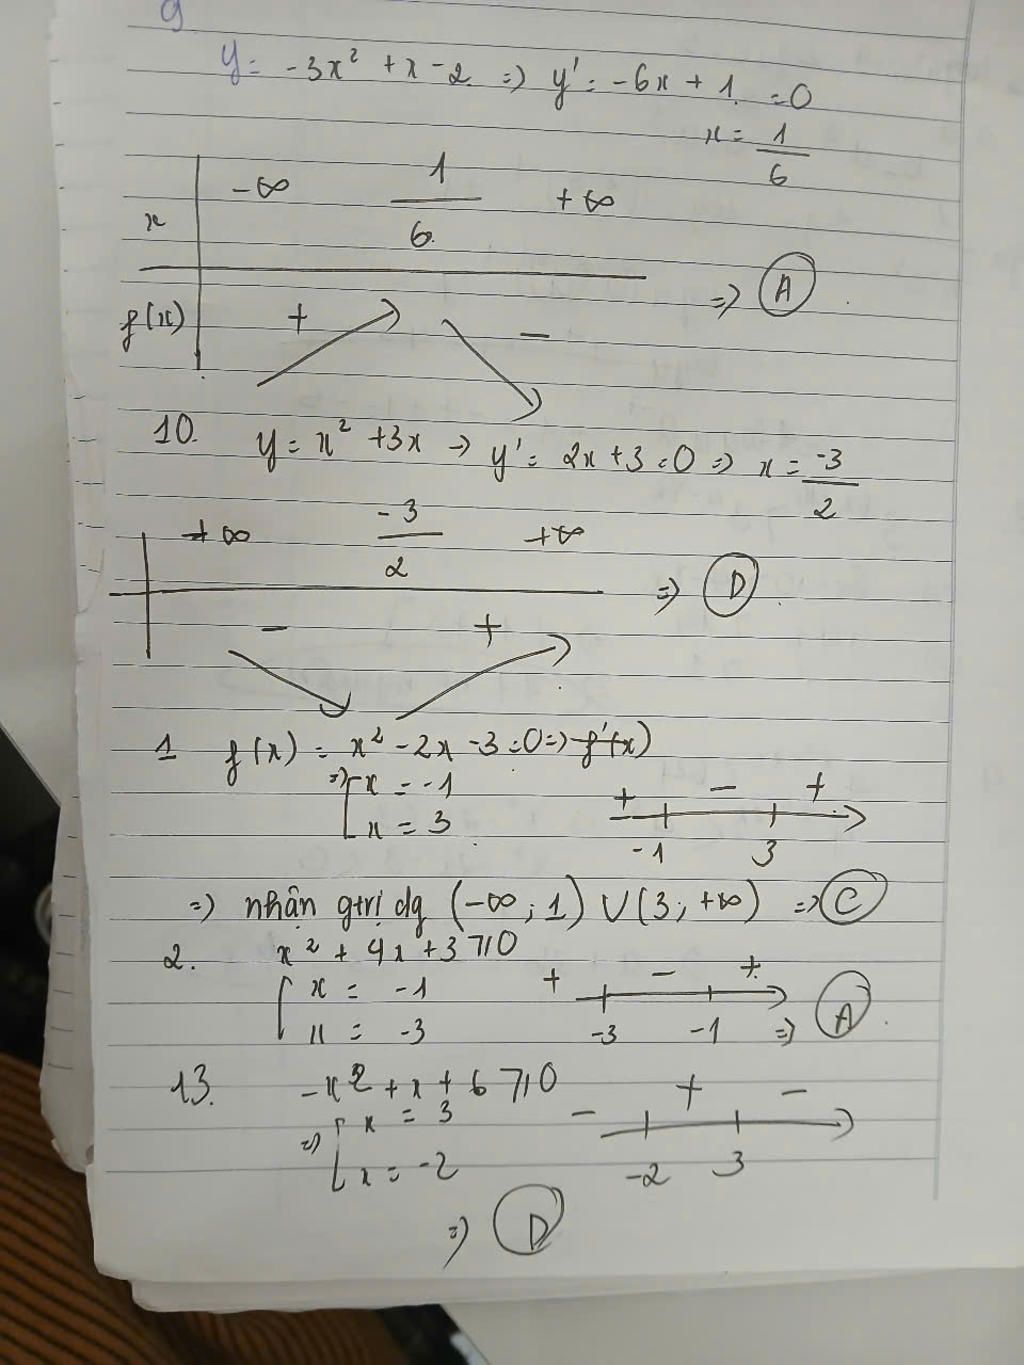 9
y = -3x² + x - 2 => y' = -6x + 1 = 0
x = 1/6
x | -∞ 1/6 +∞
f(x) | + - => A
10. y = x² + 3x → y' = 2x + 3 = 0 => x = -3/2
+∞ -3/2 +∞
- + => D
1 f(x) = x² - 2x - 3 = 0 => f'(x)
=> [ x = -1
x = 3
+ - +
-1 3
=> nhận gtrị dg (-∞; 1) ∪ (3; +∞) => C
2. x² + 4x + 3 ≥ 0
[ x = -1
x = -3
+ - +
-3 -1 => A
13. -x² + x + 6 ≥ 0
=> [ x = 3
x = -2
- + -
-2 3
=> D